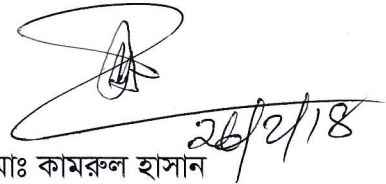 ২৬/২/১৪
মাঃ কামরুল হাসান